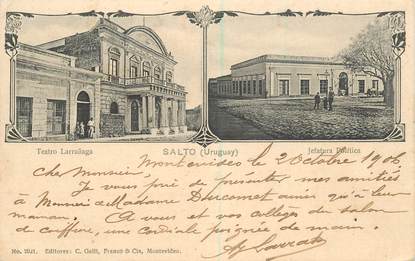 Teatro Larrañaga
SALTO (Uruguay)
Jefatura Política
Montevideo le 2 Octobre 1906
Cher Monsieur,
Je vous prie de présenter mes amitiés
à Monsieur & Madame ainsi qu'à leur
maman. A vous et vos collègues du salon
de coiffure, une cordiale poignée de main.
No. 2021. Editores: C. Galli, Franco & Cía, Montevideo.